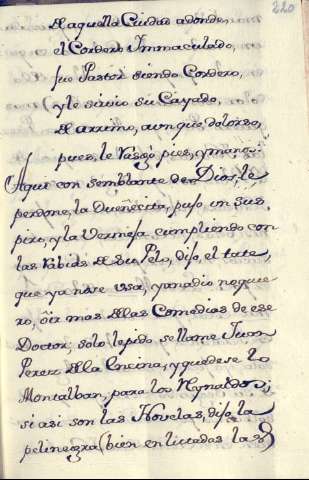 220
de aquella Ciudad adonde,
el Cordero Immaculado,
fue Pastor siendo Cordero,
y le sirvio su Cayado,
de arrimo, aunque doloroso,
pues, le rasgò pies, y manos.
Aqui con semblante de Dios, le
perdone, la Dueñecita, puso, un sus,
piro, y la Vermeja cumpliendo con
las de su Pelo, dijo, el tate,
que ya no se usa, y a nadie no quie,
ro, òir mas de las Comedias de ese
Doctor; solo le pido, se llame Juan
Perez de la Encina, y quedese lo
Montalban, para los Reynaldos;
si asi son las Novelas, dijo, la
pelinegra (bien enlutadas las